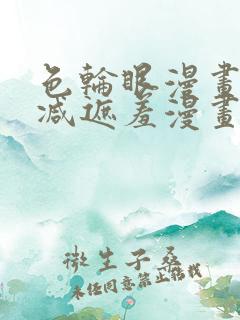 色輪眼漫畫
減遮羞漫畫
微生子桑
未任同意禁止轉載